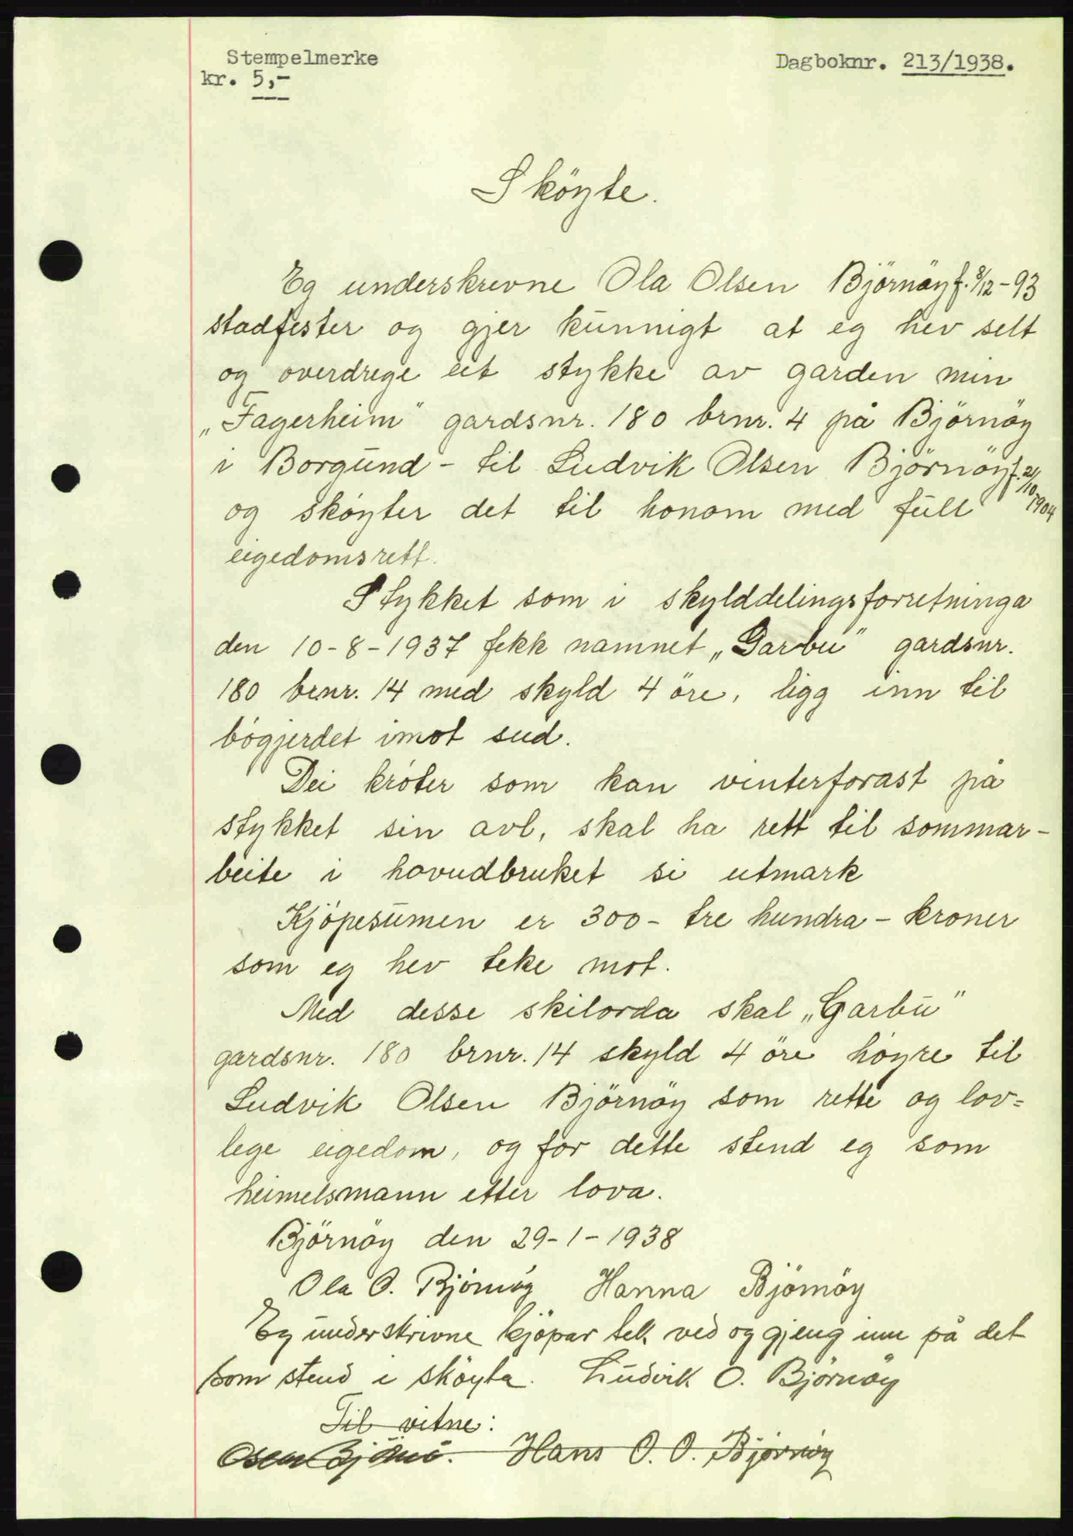 Stempelmerke
kr. 5,-
Dagboknr. 213/1938.
Sköyte.
Eg underskrevne Ola Olsen Björnöy f. 8/12-93
stadfester og gjer kunnigt at eg hev selt
og overdrege eit stykke av garden min
„Fagerheim" gardsnr. 180 brnr. 4 på Björnöy
i Borgund - til Ludvik Olsen Björnöy f. 21/10 1904
og sköyter det til honom med full
eigedomsrett.
Stykket som i skylddelingsforretninga
den 10-8-1937 fekk namnet „Garbu" gardsnr.
180 brnr. 14 med skyld 4 öre, ligg inn til
bögjerdet imot sud.
Dei kröter som kan vinterforast på
stykket sin avl, skal ha rett til sommar-
beite i hovudbruket si utmark
Kjöpesumen er 300- tre hundra - kroner
som eg hev teke mot.
Med desse skilorda skal „Garbu"
gardsnr. 180 brnr. 14 skyld 4 öre höyre til
Ludvik Olsen Björnöy som rette og lov=
lege eigedom, og for dette stend eg som
heimelsmann etter lova.
Björnöy den 29-1-1938
Ola O. Björnöy Hanna Björnöy
Eg underskrivne kjöpar tek ved og gjeng inn på det
som stend i sköyta. Ludvik O. Björnöy
Til vitne:
Hans O. O. Björnöy